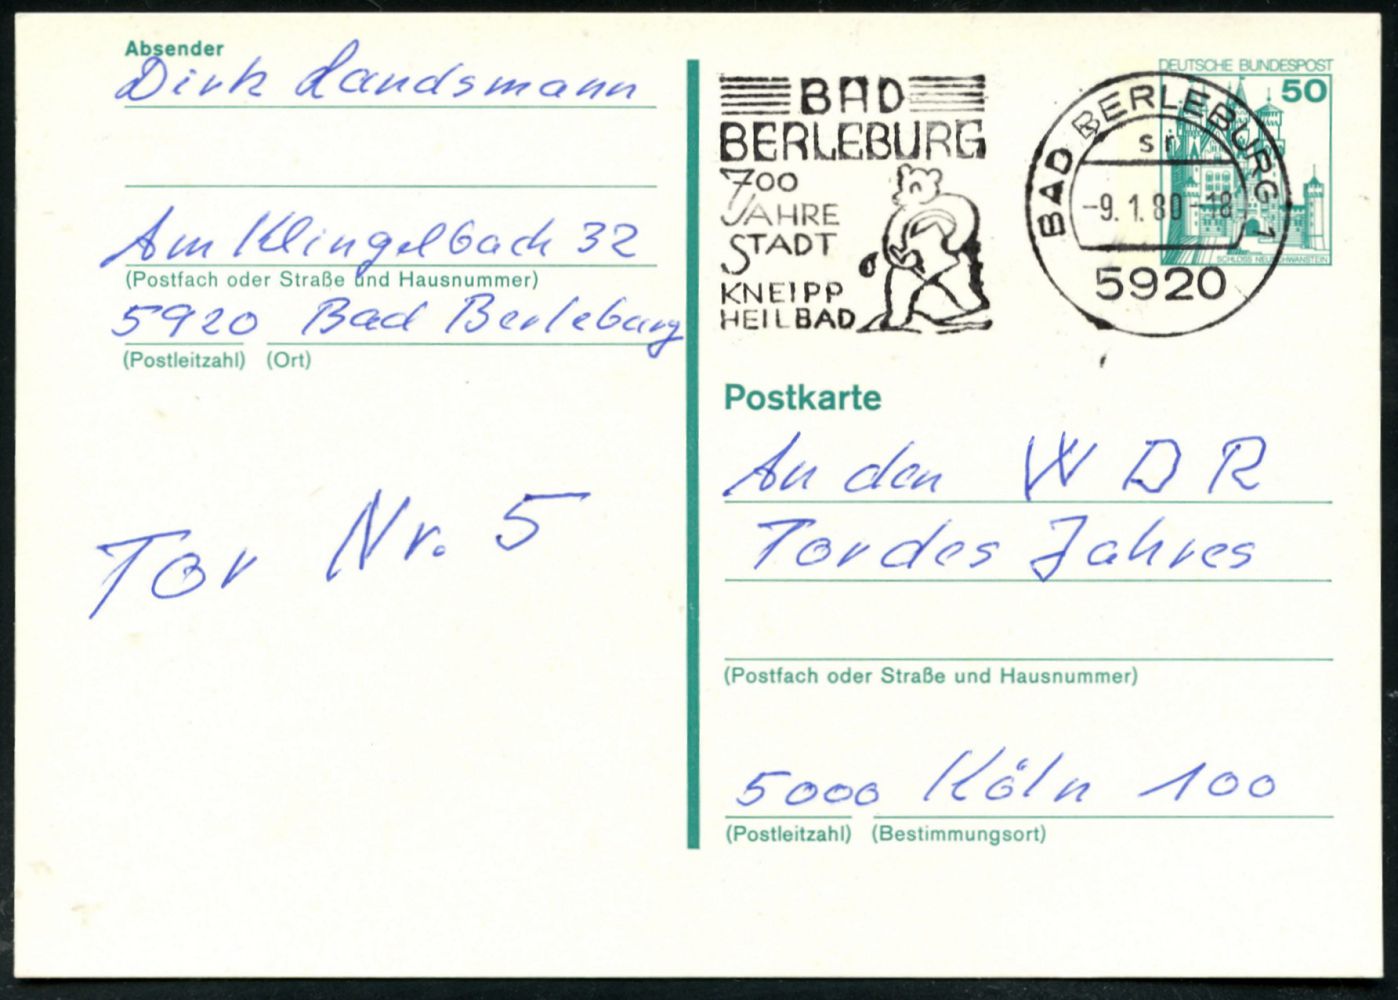 Absender
Dirk Landsmann
Am Klingelbach 32
(Postfach oder Straße und Hausnummer)
5920 Bad Berleburg
(Postleitzahl) (Ort)
Tor Nr. 5
BAD
BERLEBURG
700
JAHRE
STADT
KNEIPP
HEILBAD
BAD BERLEBURG 1
sr
-9.1.80-18
5920
DEUTSCHE BUNDESPOST
50
SCHLOSS NEUSCHWANSTEIN
Postkarte
An den WDR
Tor des Jahres
(Postfach oder Straße und Hausnummer)
5000 Köln 100
(Postleitzahl) (Bestimmungsort)